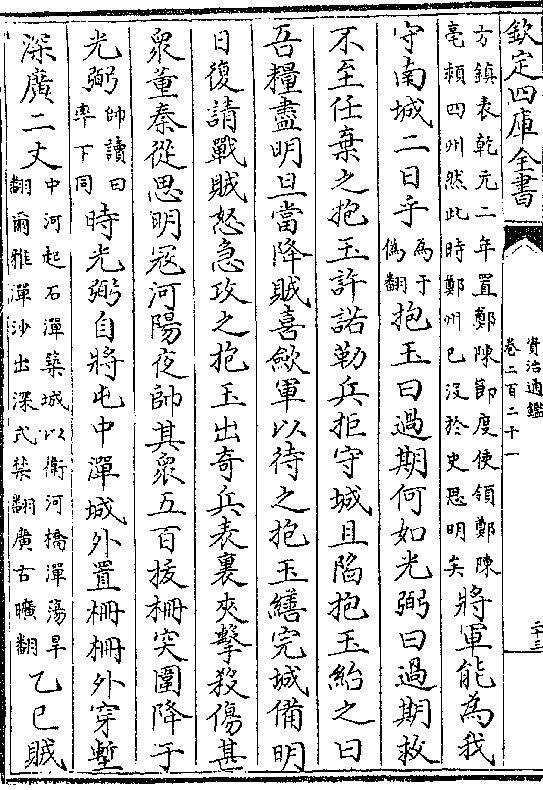 欽定四庫全書
資治通鑑
卷二百二十一
二十三
方鎮表乾元二年置鄭陳節度使領鄭陳
亳頴四州然此時鄭州已沒於史思明矣
將軍能為我
守南城二日乎
為于
偽翻
抱玉曰過期何如光弼曰過期救
不至任棄之抱玉許諾勒兵拒守城且陷抱玉紿之曰
吾糧盡明旦當降賊喜斂軍以待之抱玉繕完城備明
日復請戰賊怒急攻之抱玉出奇兵表裏夾擊殺傷甚
衆董秦從思明冦河陽夜帥其衆五百拔柵突圍降于
光弼
帥讀曰
率下同
時光弼自將屯中潬城外置柵柵外穿塹
深廣二丈
中河起石潬築城以衛河橋潬蕩旱
翻爾雅潬沙出深式禁翻廣古曠翻
乙巳賊